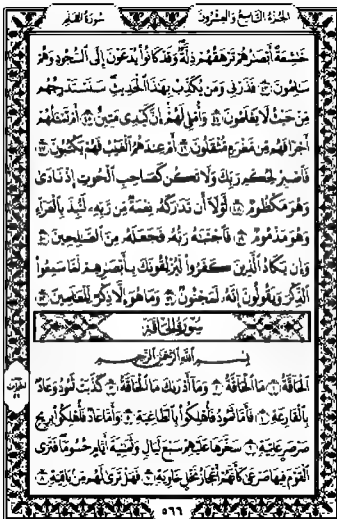 الجزء التاسع والعشرون سورة القلم
خَٰشِعَةً أَبْصَٰرُهُمْ تَرْهَقُهُمْ ذِلَّةٌ وَقَدْ كَانُوا۟ يُدْعَوْنَ إِلَى ٱلسُّجُودِ وَهُمْ
سَٰلِمُونَ ٤٣ فَذَرْنِى وَمَن يُكَذِّبُ بِهَٰذَا ٱلْحَدِيثِ سَنَسْتَدْرِجُهُم
مِّنْ حَيْثُ لَا يَعْلَمُونَ ٤٤ وَأُمْلِى لَهُمْ إِنَّ كَيْدِى مَتِينٌ ٤٥ أَمْ تَسْـَٔلُهُمْ
أَجْرًا فَهُم مِّن مَّغْرَمٍ مُّثْقَلُونَ ٤٦ أَمْ عِندَهُمُ ٱلْغَيْبُ فَهُمْ يَكْتُبُونَ ٤٧
فَٱصْبِرْ لِحُكْمِ رَبِّكَ وَلَا تَكُن كَصَاحِبِ ٱلْحُوتِ إِذْ نَادَىٰ
وَهُوَ مَكْظُومٌ ٤٨ لَّوْلَآ أَن تَدَٰرَكَهُۥ نِعْمَةٌ مِّن رَّبِّهِۦ لَنُبِذَ بِٱلْعَرَآءِ
وَهُوَ مَذْمُومٌ ٤٩ فَٱجْتَبَٰهُ رَبُّهُۥ فَجَعَلَهُۥ مِنَ ٱلصَّٰلِحِينَ ٥٠
وَإِن يَكَادُ ٱلَّذِينَ كَفَرُوا۟ لَيُزْلِقُونَكَ بِأَبْصَٰرِهِمْ لَمَّا سَمِعُوا۟
ٱلذِّكْرَ وَيَقُولُونَ إِنَّهُۥ لَمَجْنُونٌ ٥١ وَمَا هُوَ إِلَّا ذِكْرٌ لِّلْعَٰلَمِينَ ٥٢
سورة الحاقة
بِسْمِ ٱللَّهِ ٱلرَّحْمَٰنِ ٱلرَّحِيمِ
ٱلْحَآقَّةُ ١ مَا ٱلْحَآقَّةُ ٢ وَمَآ أَدْرَىٰكَ مَا ٱلْحَآقَّةُ ٣ كَذَّبَتْ ثَمُودُ وَعَادٌۢ
بِٱلْقَارِعَةِ ٤ فَأَمَّا ثَمُودُ فَأُهْلِكُوا۟ بِٱلطَّاغِيَةِ ٥ وَأَمَّا عَادٌ فَأُهْلِكُوا۟ بِرِيحٍ
صَرْصَرٍ عَاتِيَةٍ ٦ سَخَّرَهَا عَلَيْهِمْ سَبْعَ لَيَالٍ وَثَمَٰنِيَةَ أَيَّامٍ حُسُومًا فَتَرَى
ٱلْقَوْمَ فِيهَا صَرْعَىٰ كَأَنَّهُمْ أَعْجَازُ نَخْلٍ خَاوِيَةٍ ٧ فَهَلْ تَرَىٰ لَهُم مِّنۢ بَاقِيَةٍ ٨
٥٦٦